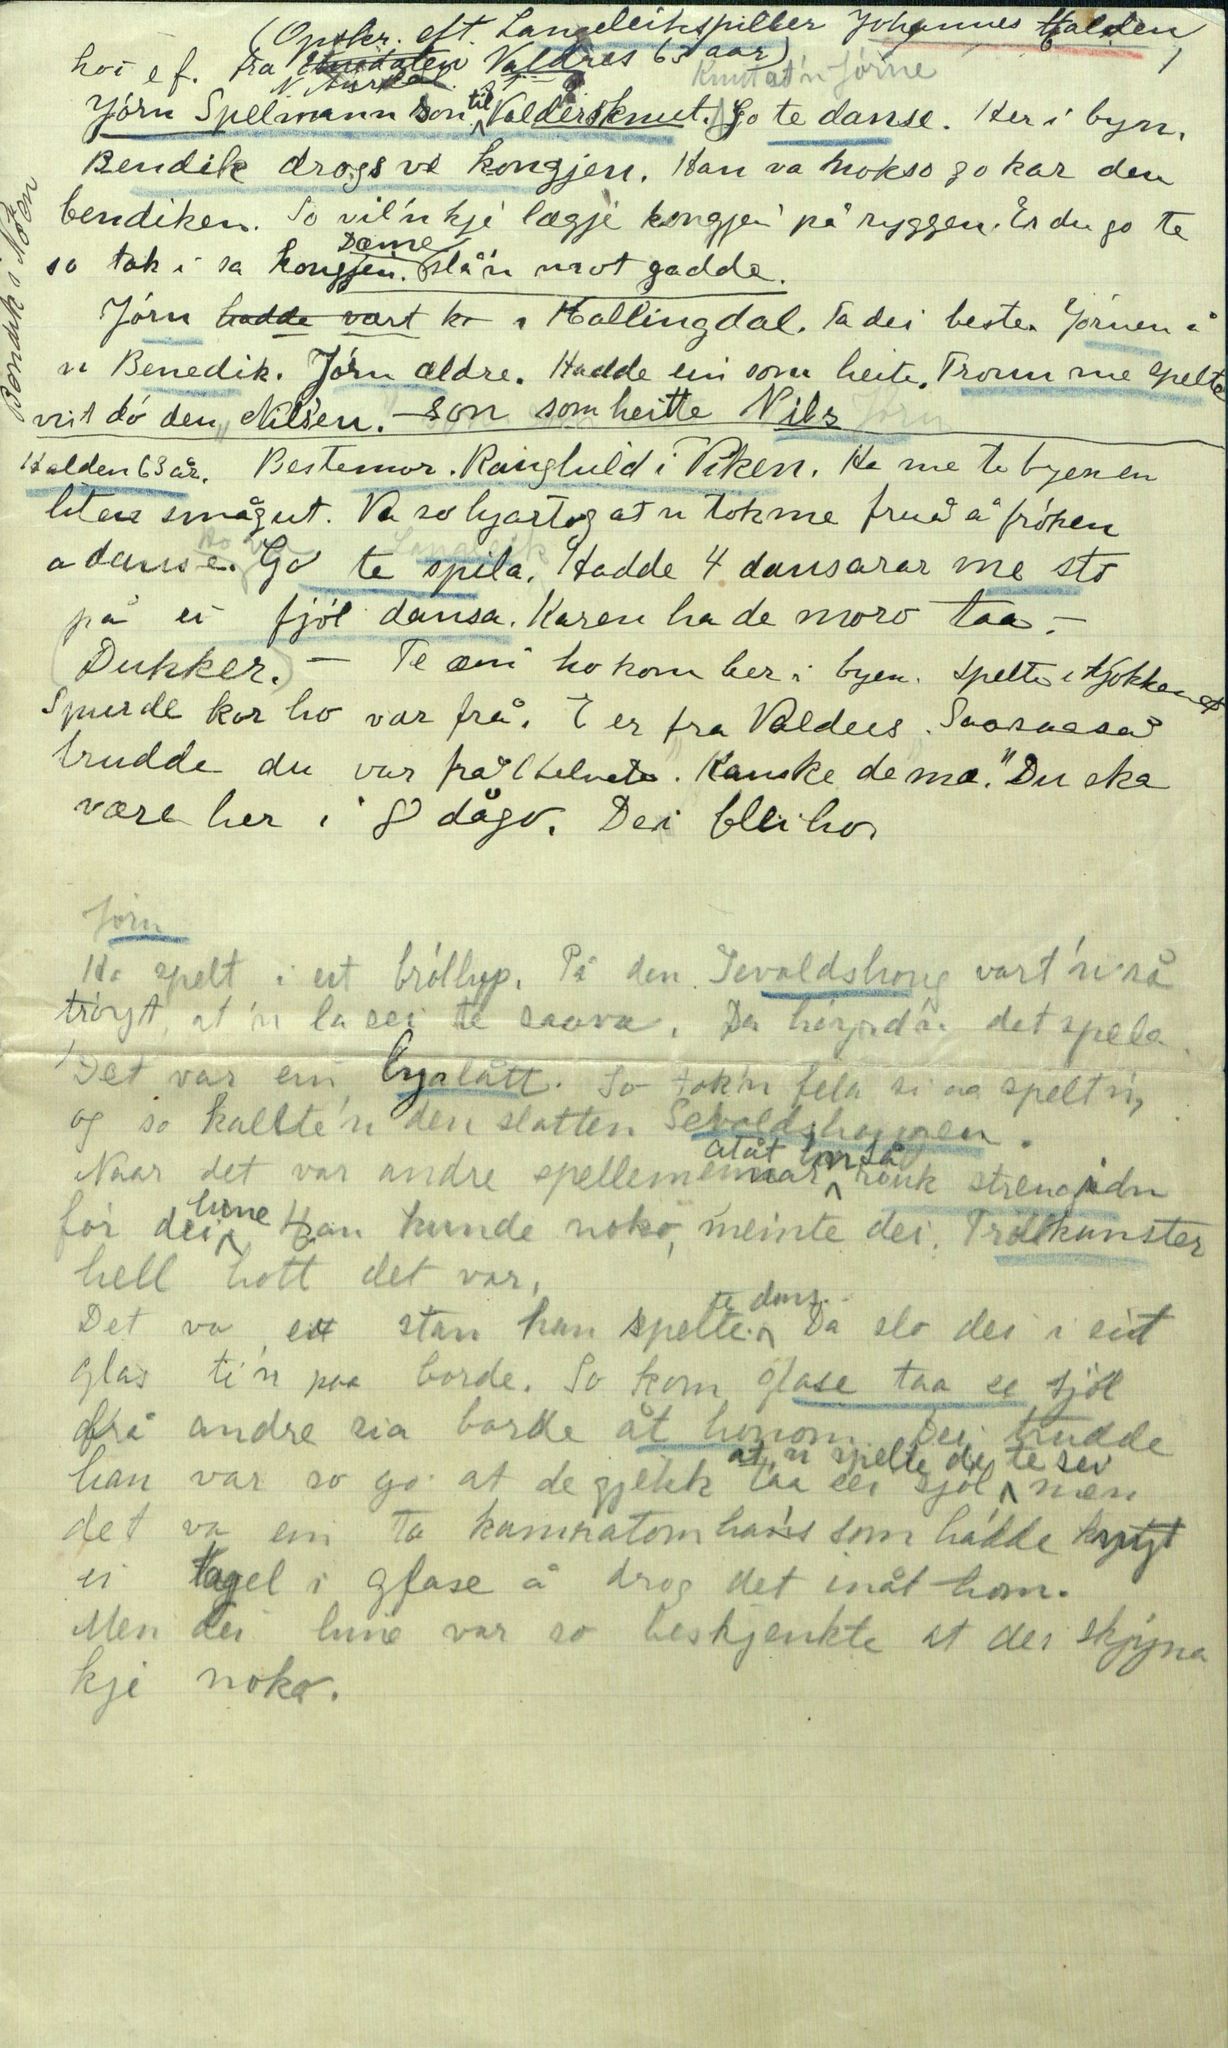 (Opskr. eft. Langeleikspiller Johannes Halden,
hos e f. fra Valdres 63 aar)
N. Aurdal
Knut at'n Jörne
Jörn Spelmann son til Valdersknut. Go te danse. Her i byn.
Bendik drogs ve kongjen. Han va nokso go kar den
bendiken. So vil'n kje lægje kongjen på ryggen. Er du go te
so tak i sa kongjen. Dæme slå'n mot gadde.
Jörn hadde vært k i Hallingdal. Ta dei beste. Jörnen å
n Benedik. Jörn ældre. Hadde ein som heite. Tronn me spelte
vit dö den "Nilsen. - son som heitte Nils
Bendik i Nöten
Halden 63 år. Bestemor. Ranghild i Viken. Ha me te byen en
liten smågut. Va so hjartog at n tok me frua å fröken
a danse. Ho va Go te spila. Langleik Hadde 4 dansarar me sto
på ei fjöl dansa. Karen ha de moro taa. -
(Dukker.) - Te æni ho kom her i byen. Spelte i kjökkenet
Spurde kor ho var frå. E er fra Valders. Saasaasaa
trudde du var frå helvete. Kanske de mæ." Du ska
være her i 8 dågo. Dei blei ho

Jörn
Ha spelt i eit bröllup. På den Sevoldshoug vart'n så
tröyt, at'n la sei te saava. Da höyrd'n det spela.
Det var ein lyalått. So tok'n fela si aa spelt'n,
og so kallte'n den slatten Sevoldshougen.
Naar det var andre spellemenner atåt honså rauk strengidn
för dei hine. Han kunde noko, meinte dei. Trolkunster
hell hott det var.
Det va eit stan han spelte te dans. Da slo dei i eit
glas ti'n paa borde. So kom glase taa se sjöl
frå andre sia borde åt honom. Dei trudde
han var so go at de gjekk taa sei sjöl at n spelte de te sei men
det va ein ta kamratom hans som hadde knyt
ei tagel i glase å drog det inåt hom.
Men dei hine var so beskjenkte at dei skjyna
kje noko.